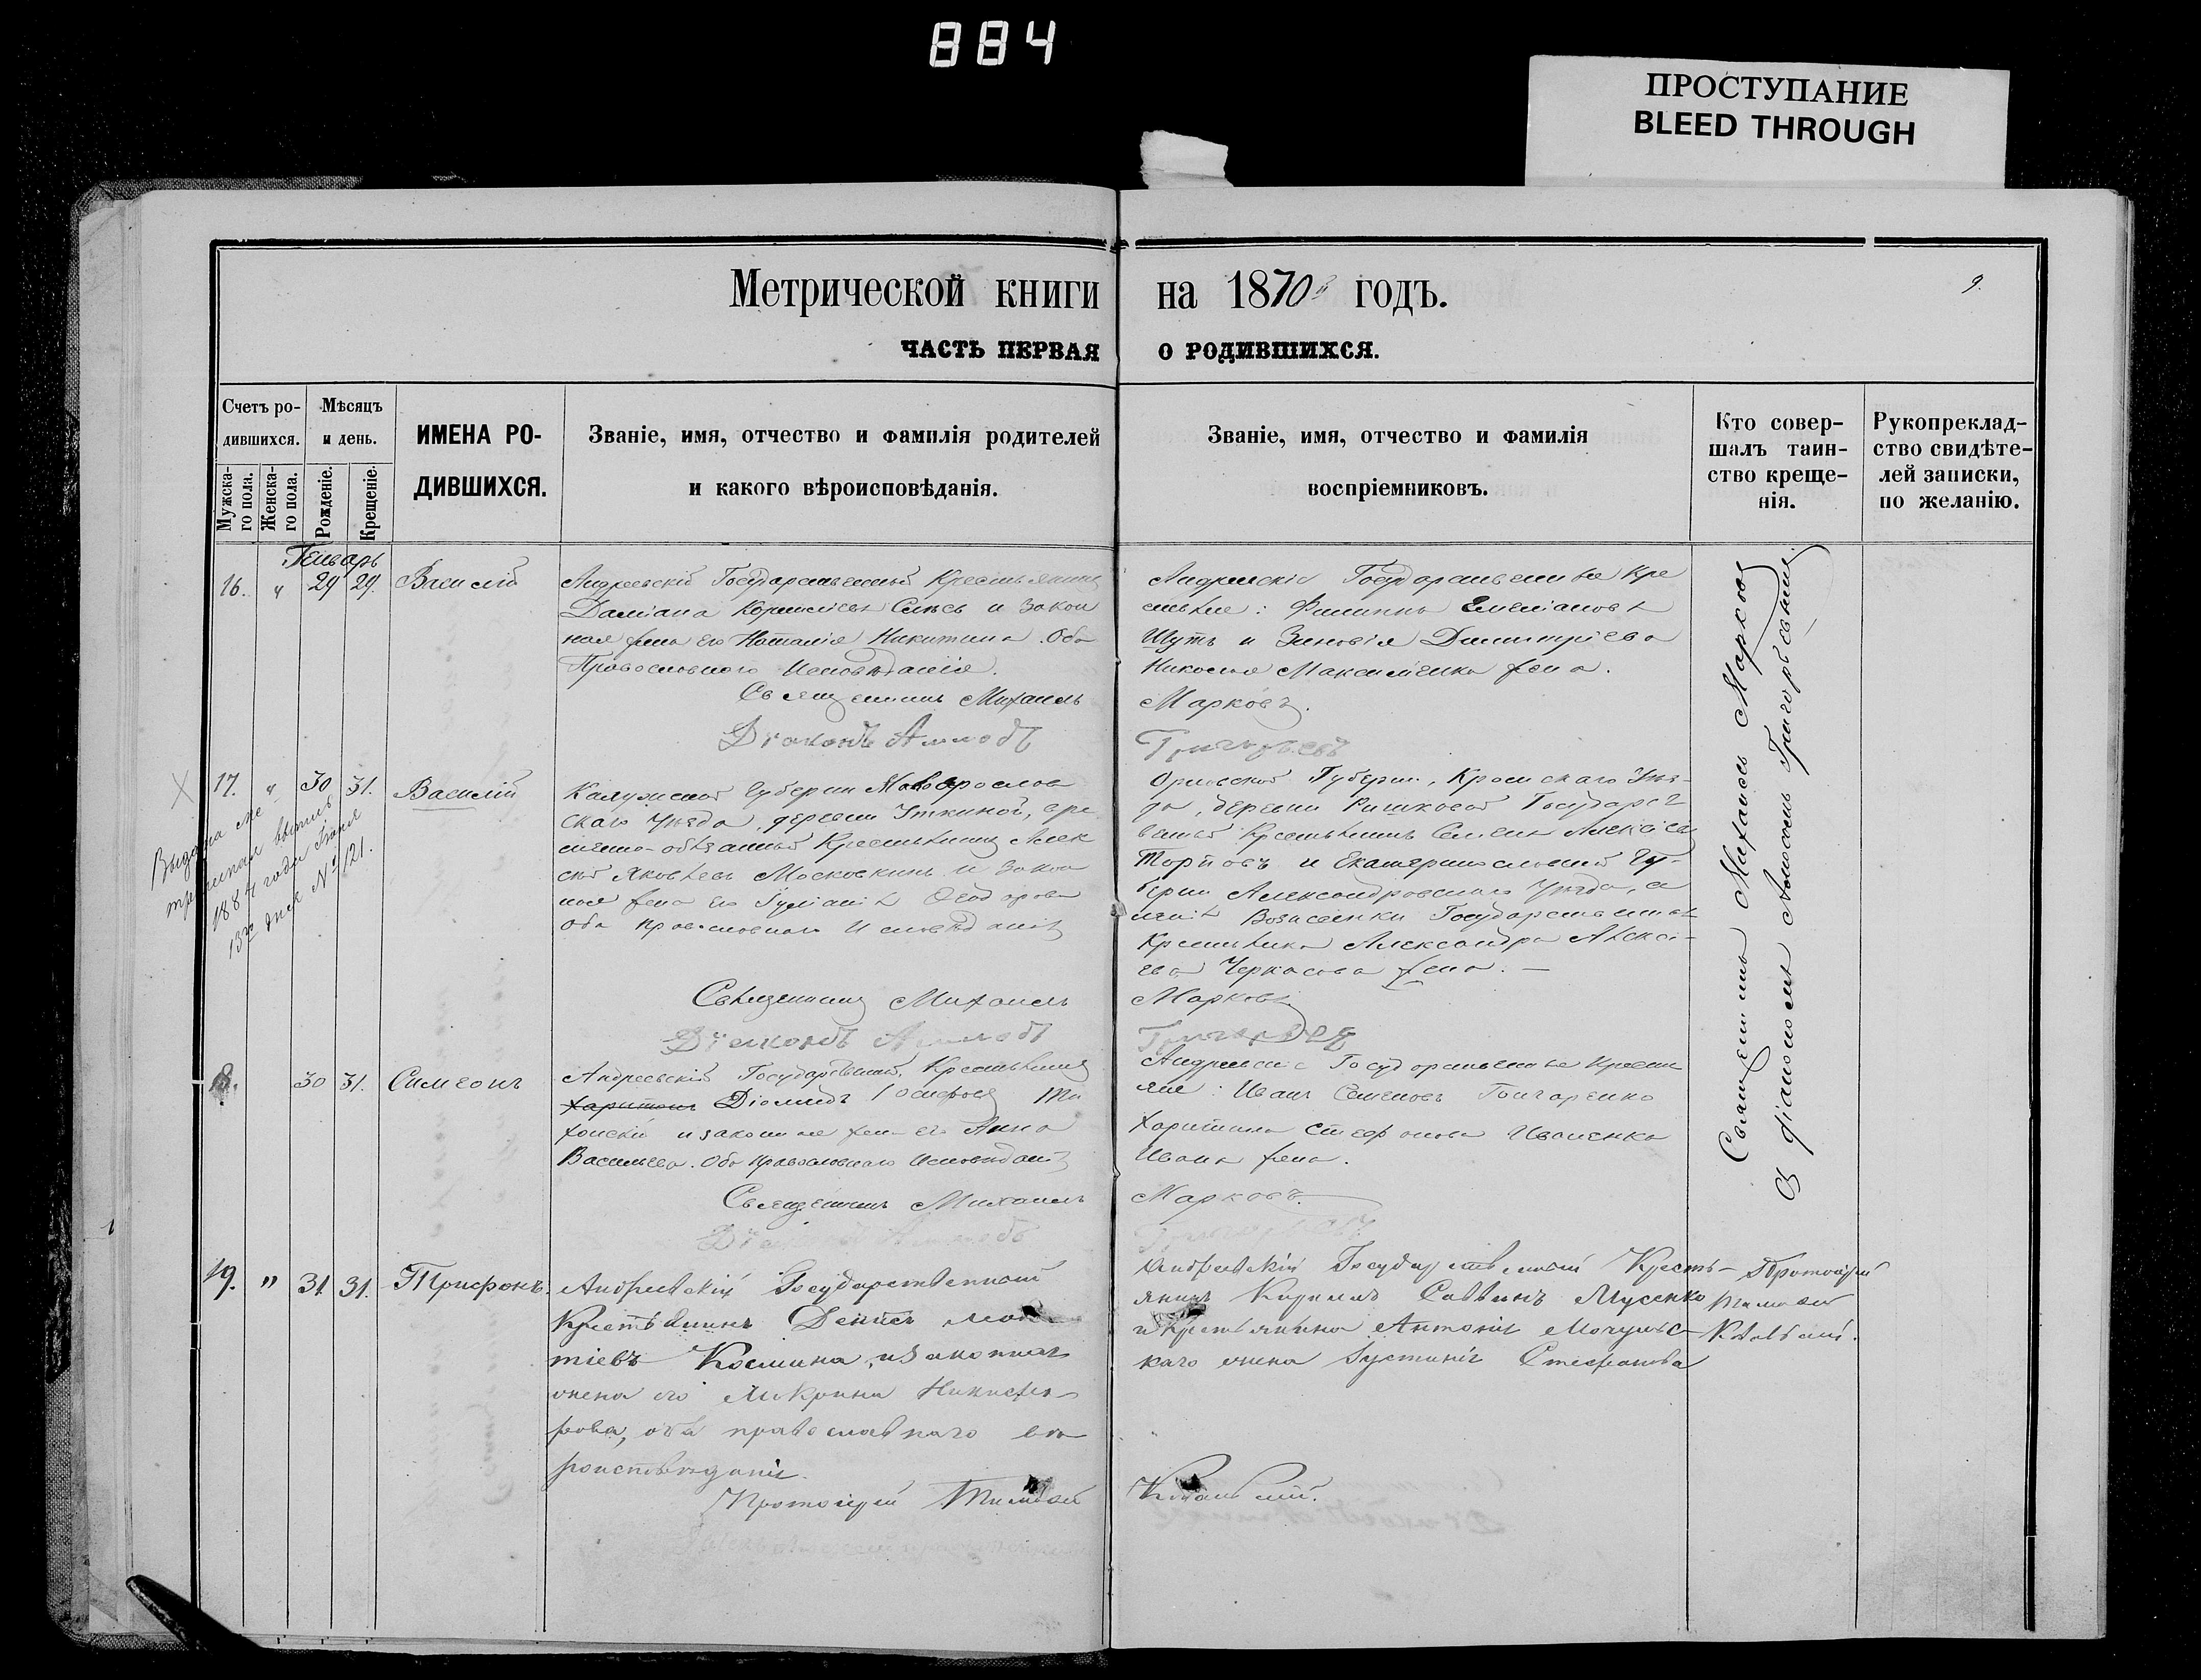 884
ПРОСТУПАНИЕ
BLEED THROUGH
Метрической книги на 1870 годъ.
9.
ЧАСТЬ ПЕРВАЯ О РОДИВШИХСЯ.
Счетъ ро-
дившихся.
Мужска-
го пола.
Женска-
го пола.
Мѣсяцъ
и день.
Рожденіе.
Крещеніе.
ИМЕНА РО-
ДИВШИХСЯ.
Званіе, имя, отчество и фамилія родителей
и какого вѣроисповѣданія.
Званіе, имя, отчество и фамилія
воспріемниковъ.
Кто совер-
шалъ таин-
ство креще-
нія.
Рукоприклад-
ство свидѣте-
лей записки,
по желанію.
Генварь
16. " 29 29.
Андреевскій Государственный Крестьянинъ
и закон
ная жена его Наталія Никитина. Оба
Православнаго Исповѣданія.
Священникъ Михаилъ
Діаконъ
Андреевскіе Государственные кре
стьяне: Филиппъ Емеліановъ
Шутъ и Зиновія Димитріева
Николая Максименка жена.
Марковъ.
Григорьевъ
17. " 30 31. Василій
Выдана ме
трическая выпись
1884 года
13го дня № 121.
Калужской Губерніи
скаго Уѣзда, деревни Уткиной,
Крестьянинъ Алек
сѣй Яковлевъ Московкинъ и закон
ная жена его Іуліанія Ѳеодорова
Оба Православнаго Исповѣданія
Священникъ Михаилъ
Діаконъ
Орловской Губерніи, Кромскаго Уѣз-
да, деревни Государст
венный Крестьянинъ Алексѣевъ
и Екатеринославской Гу-
берніи Александровскаго Уѣзда, се
ленія Вознесенки Государственнаго
Крестьянина Александра Алексѣ-
ева Черкасова жена. —
Марковъ
Григорьевъ
18. 30 31. Симеонъ
Андреевскій Государственный Крестьянинъ
Харитонъ Діомидъ Іосифовъ
и законная жена его Анна
Васильева. Оба Православнаго Исповѣданія
Священникъ Михаилъ
Діаконъ
Андреевскіе Государственные Крестья
яне: Иванъ Семеновъ Гончаренко
Харитина Стефанова Иваненка
Ивана жена.
Марковъ.
Григорьевъ
19. " 31 31. Трифонъ.
Андреевскій Государственный
Крестьянинъ Денисъ
тіевъ Космина, и законная
жена его Макрина Никифо-
рова, оба православнаго вѣ
роисповѣданія.
Протоіерей Тимофей
Андреевскій Государственный Кресть-
янинъ Кириллъ Саввинъ Мусенко
и Крестьянина Антонія Мочульс-
каго жена Іустинія Стефанова
Священникъ Михаилъ Марковъ
съ діакономъ Григорьевымъ
Протоіерей
Тимофей